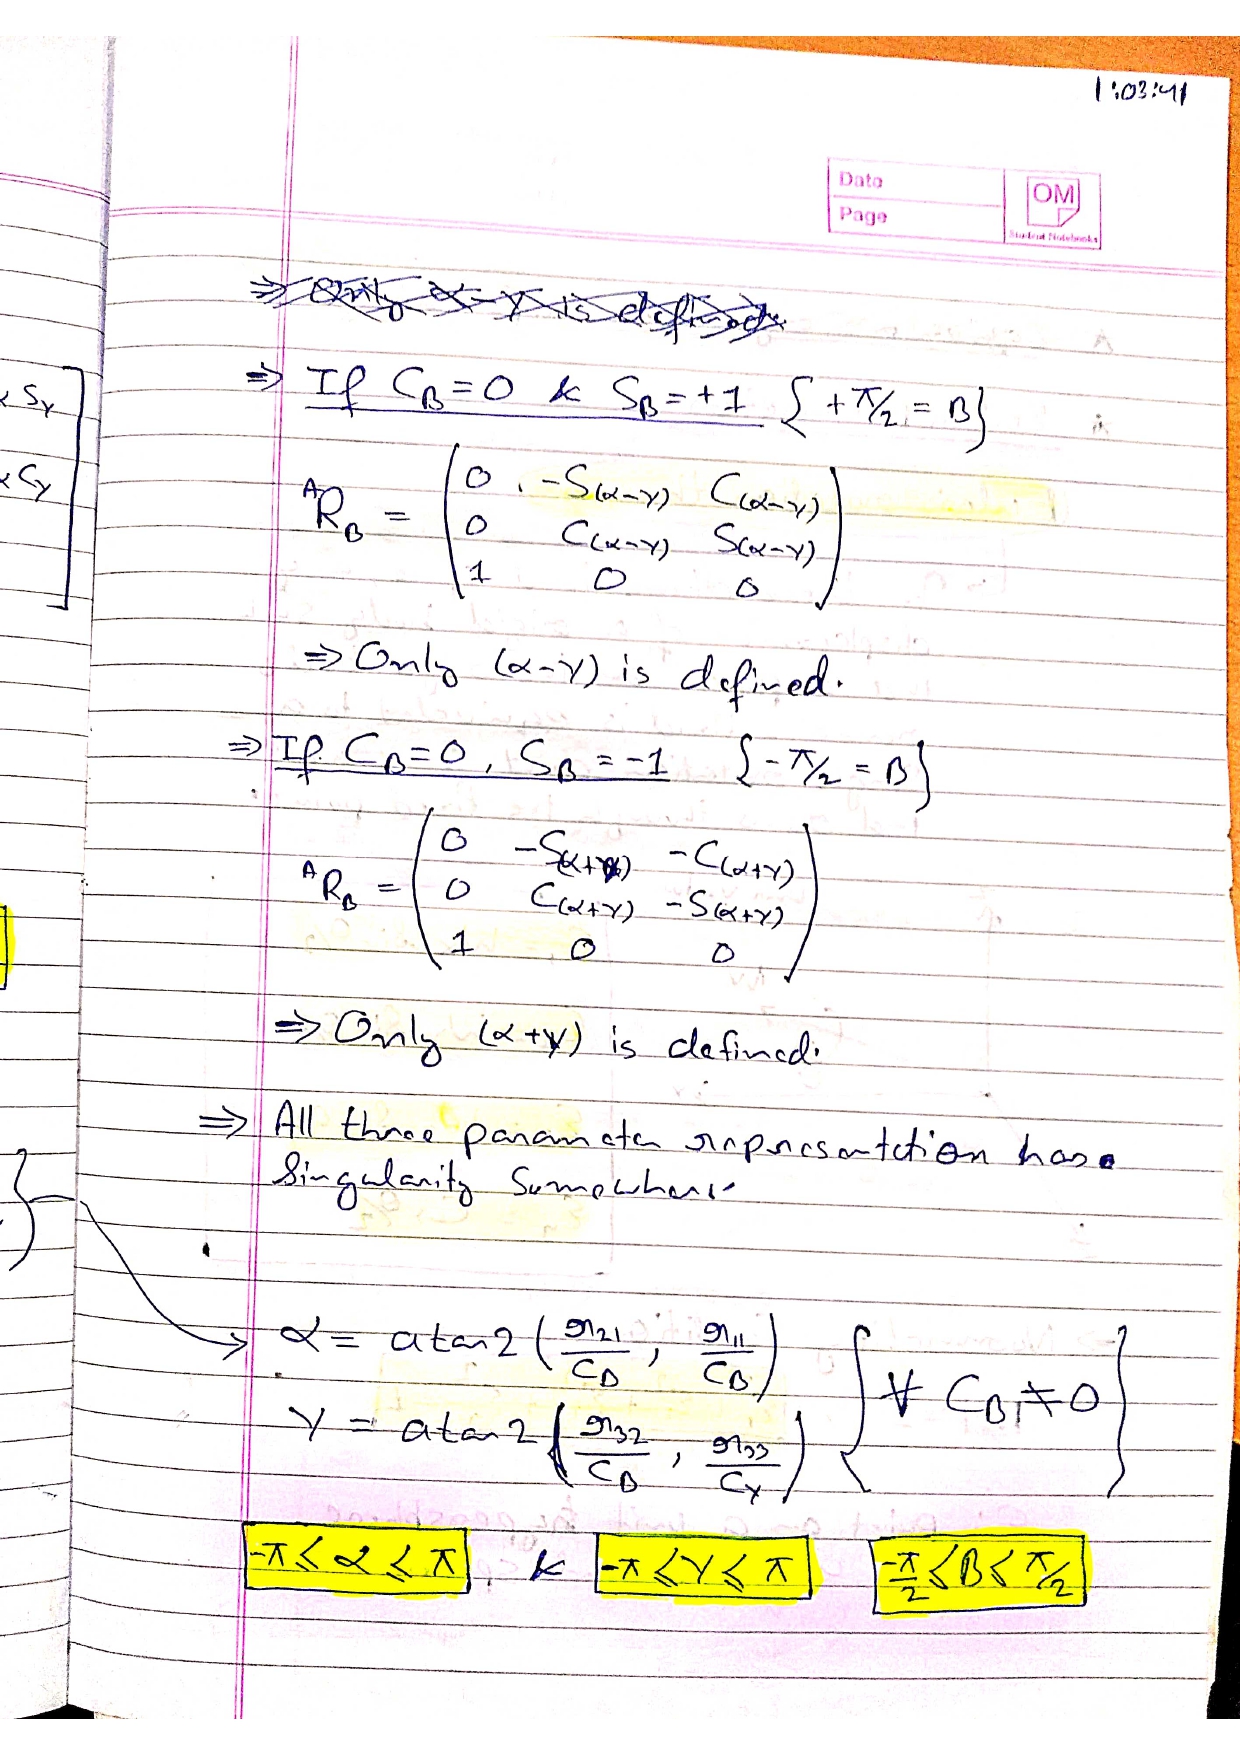 1:03:41
Date
Page
OM
Student Notebooks
⇒ Only α-γ is defined.
⇒ If Cβ=0 & Sβ=+1 {+π/2 = β}
ᴬR_B = ( 0 -S(α-γ) C(α-γ)
0 C(α-γ) S(α-γ)
1 0 0 )
⇒ Only (α-γ) is defined.
⇒ If Cβ=0, Sβ=-1 {-π/2 = β}
ᴬR_B = ( 0 -S(α+γ) -C(α+γ)
0 C(α+γ) -S(α+γ)
1 0 0 )
⇒ Only (α+γ) is defined.
⇒ All three parameter representation has
Singularity Somewhere
α = atan2 ( r21/Cβ , r11/Cβ )
γ = atan2 ( r32/Cβ , r33/Cγ ) { ∀ Cβ ≠ 0 }
-π ≤ α ≤ π & -π ≤ γ ≤ π -π/2 ≤ β ≤ π/2
Sγ
Cγ